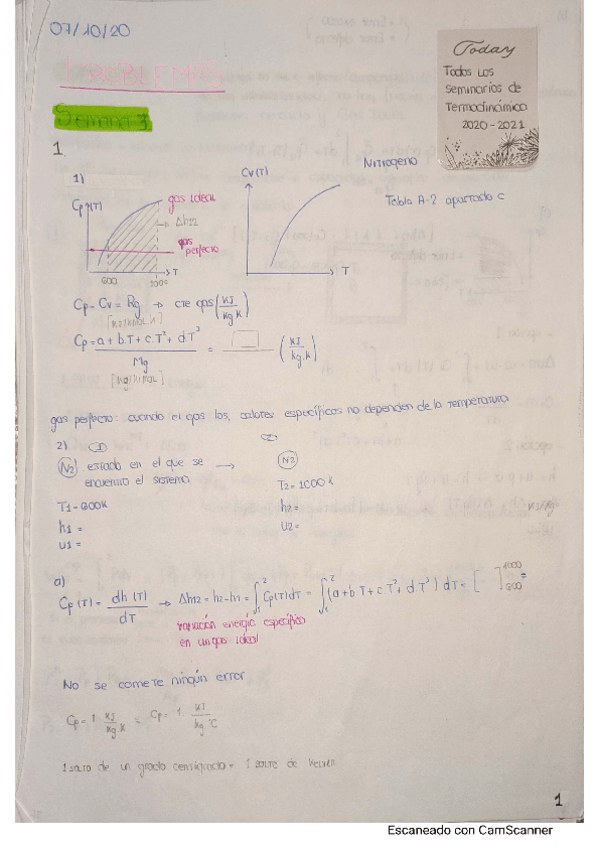 07/10/20
PROBLEMAS
Today
Todos los
seminarios de
Termodinámica
2020-2021
Semana 3
1.
1)
Cp(T)
gas ideal
Δh12
gas
perfecto
600
1000
T
Cv(T)
T
Nitrógeno
Tabla A-2 apartado c
Cp - Cv = Rg → cte gas (KJ/kg·K)
[KJ/kmol·K]
Cp = a + b.T + c.T² + d.T³ / Mg = ( KJ/kg·K )
[kg/kmol]
gas perfecto: cuando el gas los, calores específicos no dependen de la temperatura
2) ① ②
N2 estado en el que se → N2
encuentra el sistema
T1 = 600K T2 = 1000K
h1 = h2 =
u1 = u2 =
a)
Cp(T) = dh(T)/dT → Δh12 = h2-h1 = ∫₁² Cp(T)dT = ∫₁² (a + b T + c T² + d T³) dT = [ ]₆₀₀¹⁰⁰⁰ =
variación energía específica
en un gas ideal
No se comete ningún error
Cp = 1 KJ/kg·K = Cp = 1 KJ/kg·°C
1 salto de un grado centígrado = 1 salto de Kelvin
1
Escaneado con CamScanner